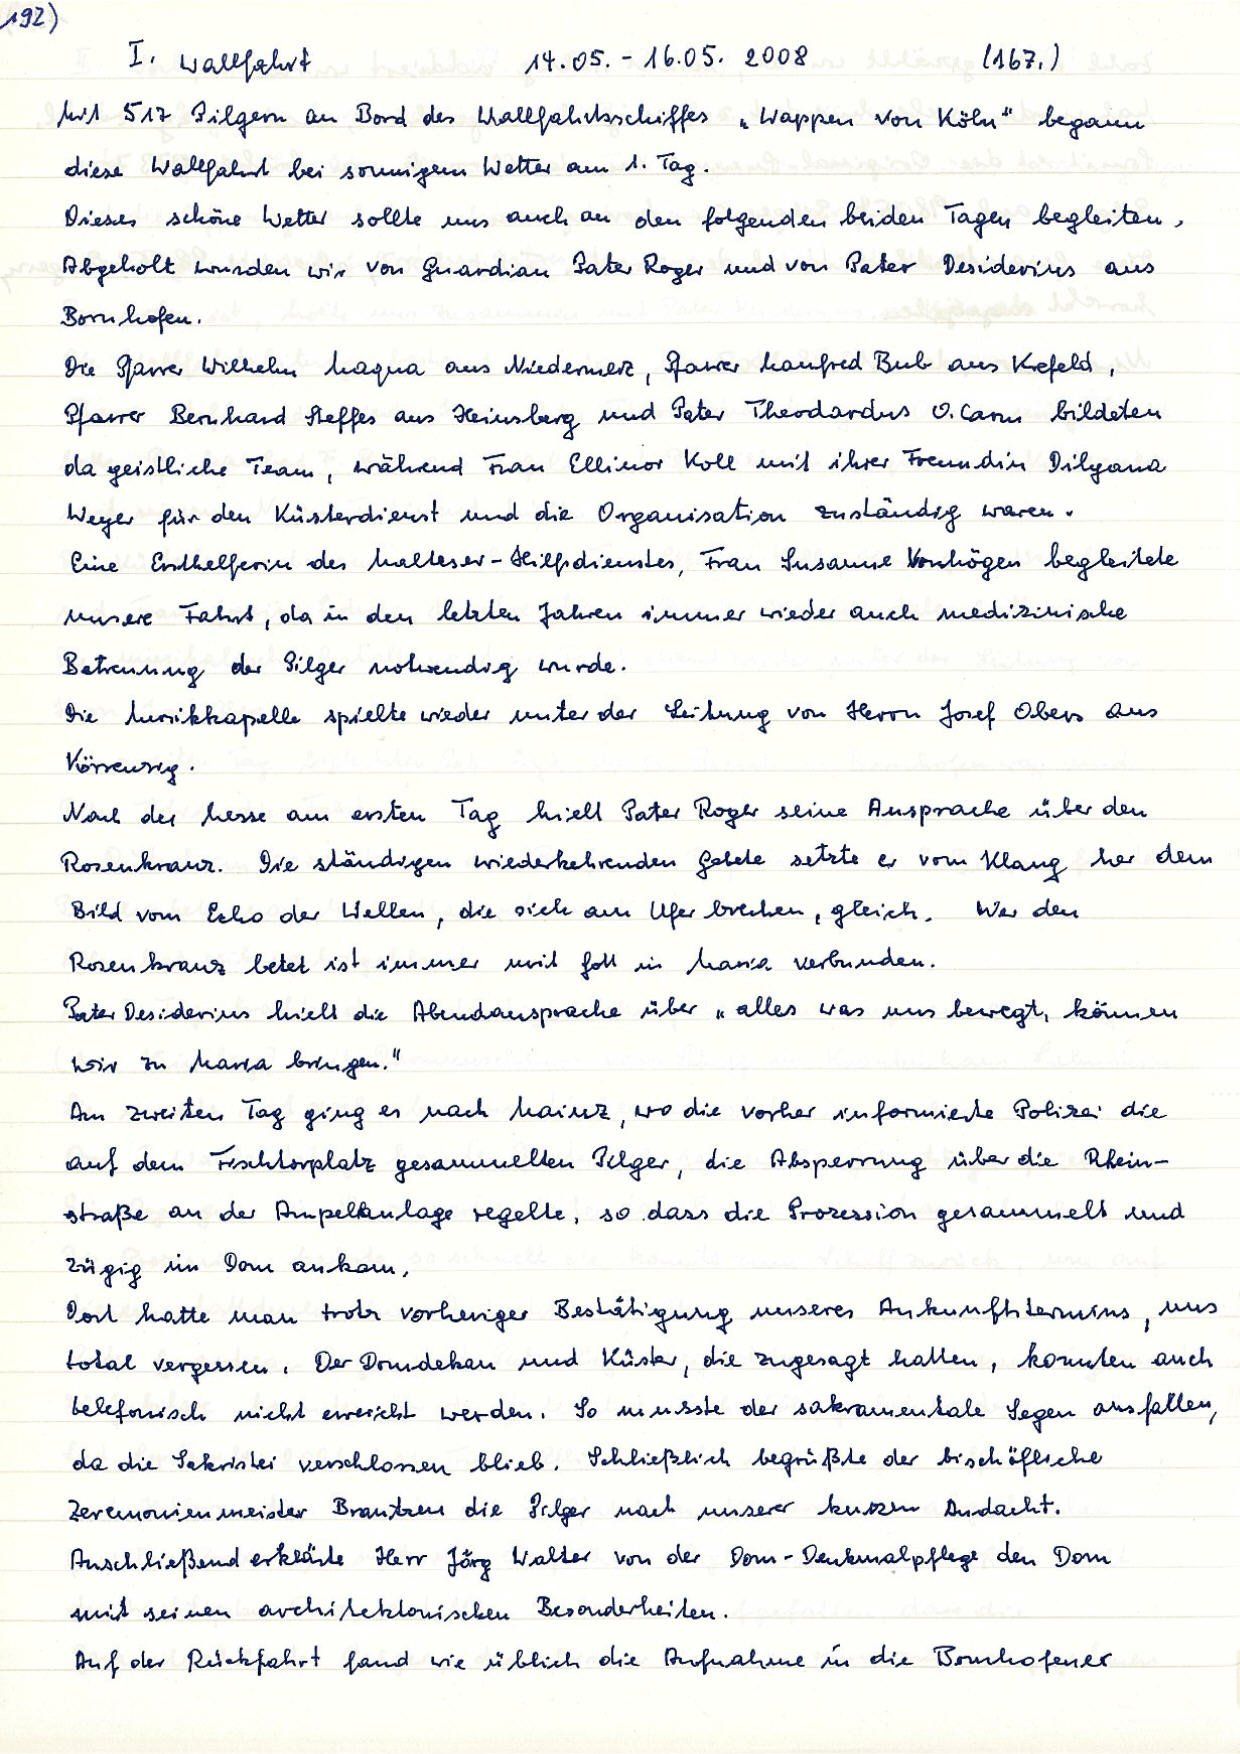 192)
I. Wallfahrt 14.05. - 16.05. 2008 (167.)
Mit 517 Pilgern an Bord des Wallfahrtsschiffes „Wappen von Köln" begann
diese Wallfahrt bei sonnigem Wetter am 1. Tag.
Dieses schöne Wetter sollte uns auch an den folgenden beiden Tagen begleiten.
Abgeholt wurden wir von Guardian Pater Roger und von Pater Desiderius aus
Bornhofen.
Die Pfarrer Wilhelm Maqua aus Niedermerz, Pfarrer Manfred Bub aus Krefeld,
Pfarrer Bernhard Steffes aus Heinsberg und Pater Theodardus O.Carm bildeten
da geistliche Team, während Frau Ellinor Koll mit ihrer Freundin Dilyana
Weyer für den Küsterdienst und die Organisation zuständig waren.
Eine Ersthelferin des Malteser-Hilfsdienstes, Frau Susanne Vonhögen begleitete
unsere Fahrt, da in den letzten Jahren immer wieder auch medizinische
Betreuung der Pilger notwendig wurde.
Die Musikkapelle spielte wieder unter der Leitung von Herrn Josef Obers aus
Körrenzig.
Nach der Messe am ersten Tag hielt Pater Roger seine Ansprache über den
Rosenkranz. Die ständigen wiederkehrenden Gebete setzte er vom Klang her dem
Bild vom Echo der Wellen, die sich am Ufer brechen, gleich. Wer den
Rosenkranz betet ist immer mit Gott in Maria verbunden.
Pater Desiderius hielt die Abendansprache über „alles was uns bewegt, können
wir zu Maria bringen."
Am zweiten Tag ging es nach Mainz, wo die vorher informierte Polizei die
auf dem Fischtorplatz gesammelten Pilger, die Absperrung über die Rhein-
straße an der Ampelanlage regelte, so dass die Prozession gesammelt und
zügig im Dom ankam.
Dort hatte man trotz vorheriger Bestätigung unseres Ankunftstermins, uns
total vergessen. Der Domdekan und Küster, die zugesagt hatten, konnten auch
telefonisch nicht erreicht werden. So musste der sakramentale Segen ausfallen,
da die Sakristei verschlossen blieb. Schließlich begrüßte der bischöfliche
Zeremonienmeister Brantzen die Pilger nach unserer kurzen Andacht.
Anschließend erklärte Herr Jörg Walter von der Dom-Denkmalpflege den Dom
mit seinen architektonischen Besonderheiten.
Auf der Rückfahrt fand wie üblich die Aufnahme in die Bornhofener